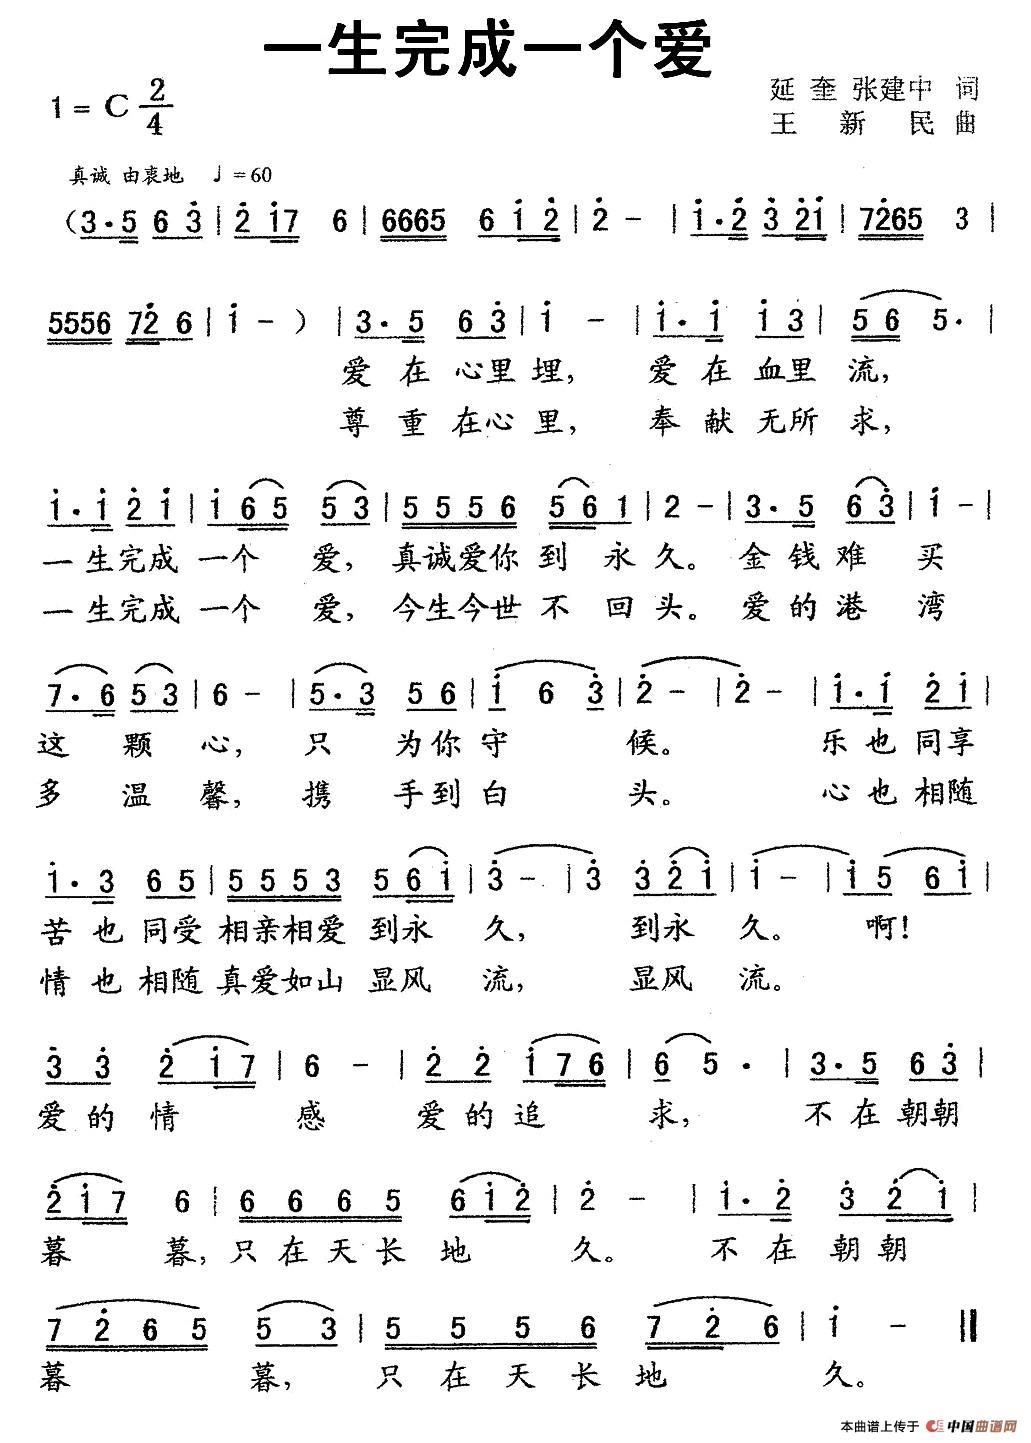 一生完成一个爱
1 = C 2/4
延 奎 张建中 词
王 新 民 曲
真诚 由衷地 ♩ = 60
(3·5 6 3̇ | 2̇ 1̇7 6 | 6665 6 1̇ 2̇ | 2̇ - | 1̇·2̇ 3̇ 2̇1̇ | 72̇65 3 |
5556 72̇ 6 | 1̇ - ) | 3·5 6 3̇ | 1̇ - | 1̇·1̇ 1̇ 3 | 5 6 5· |
爱 在 心里 埋， 爱 在 血里 流，
尊 重 在心 里， 奉 献 无所 求，
1̇·1̇ 2̇ 1̇ | 1̇ 6 5 5 3 | 5 5 5 6 5 6 1 | 2 - | 3·5 6 3̇ | 1̇ - |
一 生完成 一个 爱， 真诚爱你 到 永 久。 金 钱 难 买
一 生完成 一个 爱， 今生今世 不 回 头。 爱 的 港 湾
7·6 5 3 | 6 - | 5·3 5 6 | 1̇ 6 3̇ | 2̇ - | 2̇ - | 1̇·1̇ 2̇ 1̇ |
这 颗 心， 只 为你 守 候。 乐 也 同享
多 温 馨， 携 手到 白 头。 心 也 相随
1̇·3 6 5 | 5 5 5 3 5 6 1̇ | 3̇ - | 3̇ 3̇ 2̇ 1̇ | 1̇ - | 1̇ 5 6 1̇ |
苦 也 同受 相亲相爱 到永 久， 到永 久。 啊！
情 也 相随 真爱如山 显风 流， 显风 流。
3̇ 3̇ 2̇ 1̇ 7 | 6 - | 2̇ 2̇ 1̇ 7 6 | 6 5 · | 3·5 6 3̇ |
爱 的 情 感 爱 的 追 求， 不 在 朝朝
2̇ 1̇ 7 6 | 6 6 6 5 6 1̇ 2̇ | 2̇ - | 1̇·2̇ 3̇ 2̇ 1̇ |
暮 暮，只 在 天 长 地 久。 不 在 朝 朝
7 2̇ 6 5 5 3 | 5 5 5 6 7 2̇ 6 | 1̇ - ‖
暮 暮， 只 在 天 长 地 久。
本曲谱上传于 中国曲谱网